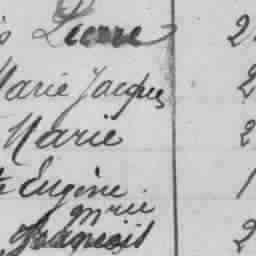 Pierre 2
Marie Jacques 2
Marie 2
Eugène 1
mrie
François 2